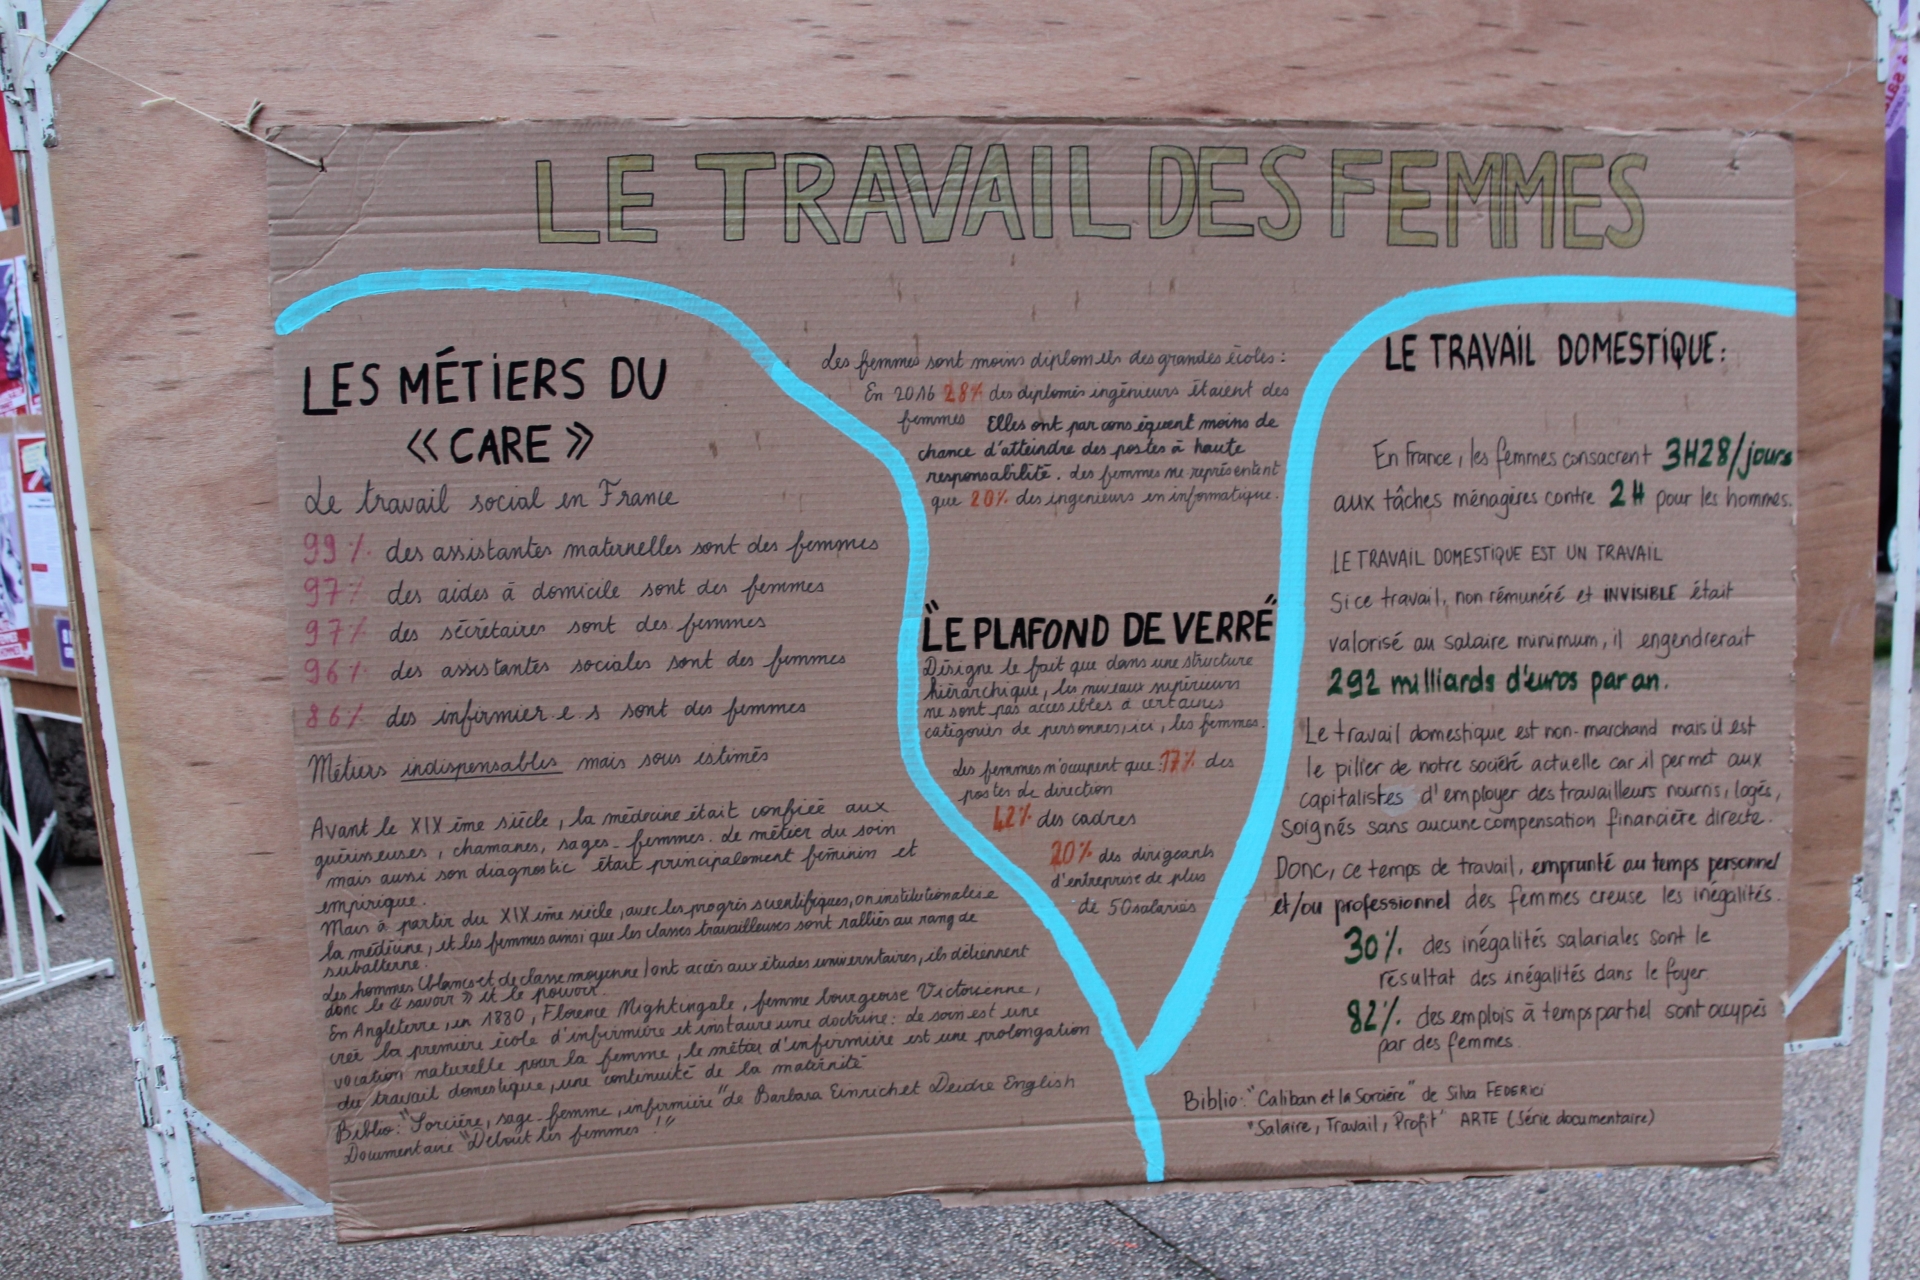 LE TRAVAIL DES FEMMES
LES MÉTIERS DU
« CARE »
Le travail social en France
99% des assistantes maternelles sont des femmes
97% des aides à domicile sont des femmes
97% des sécrétaires sont des femmes
96% des assistantes sociales sont des femmes
86% des infirmier.e.s sont des femmes
Métiers indispensables mais sous estimés
Avant le XIX ème siècle, la médecine était confiée aux
guérisseuses, chamanes, sages-femmes. Le métier du soin
mais aussi son diagnostic était principalement féminin et
empirique.
Mais à partir du XIX ème siècle, avec les progrès scientifiques, on institutionalise
la médecine, et les femmes ainsi que les classes travailleuses sont ralliés au rang de
subalterne.
Les hommes (blancs et de classe moyenne) ont accès aux études universitaires, ils détiennent
donc le « savoir » et le pouvoir.
En Angleterre, en 1880, Florence Nightingale, femme bourgeoise Victorienne,
créé la première école d'infirmière et instaure une doctrine: Le soin est une
vocation naturelle pour la femme, le métier d'infirmière est une prolongation
du travail domestique, une continuité de la maternité
Biblio: "Sorcière, sage-femme, infirmière" de Barbara Einrich et Deidre English
Documentaire "Debout les femmes !"
Les femmes sont moins diplomées des grandes écoles:
En 2016 28% des diplomés ingénieurs étaient des
femmes Elles ont par conséquent moins de
chance d'atteindre des postes à haute
responsabilité. des femmes ne représentent
que 20% des ingenieurs en informatique.
"LE PLAFOND DE VERRE"
Désigne le fait que dans une structure
hiérarchique, les niveaux supérieurs
ne sont pas accesibles à certaines
catégories de personnes, ici, les femmes.
Les femmes n'occupent que 17% des
postes de direction
42% des cadres
20% des dirigeants
d'entreprise de plus
de 50 salariés
LE TRAVAIL DOMESTIQUE:
En France, les femmes consacrent 3H28/jours
aux tâches ménagères contre 2H pour les hommes.
LE TRAVAIL DOMESTIQUE EST UN TRAVAIL
Si ce travail, non rémunéré et INVISIBLE était
valorisé au salaire minimum, il engendrerait
292 milliards d'euros par an.
Le travail domestique est non-marchand mais il est
le pilier de notre société actuelle car il permet aux
capitalistes d'employer des travailleurs nourris, logés,
soignés sans aucune compensation financière directe.
Donc, ce temps de travail, emprunté au temps personnel
et/ou professionnel des femmes creuse les inégalités.
30% des inégalités salariales sont le
résultat des inégalités dans le foyer
82% des emplois à temps partiel sont occupés
par des femmes.
Biblio: "Caliban et la Sorcière" de Silva FEDERICI
"Salaire, Travail, Profit" ARTE (Série documentaire)